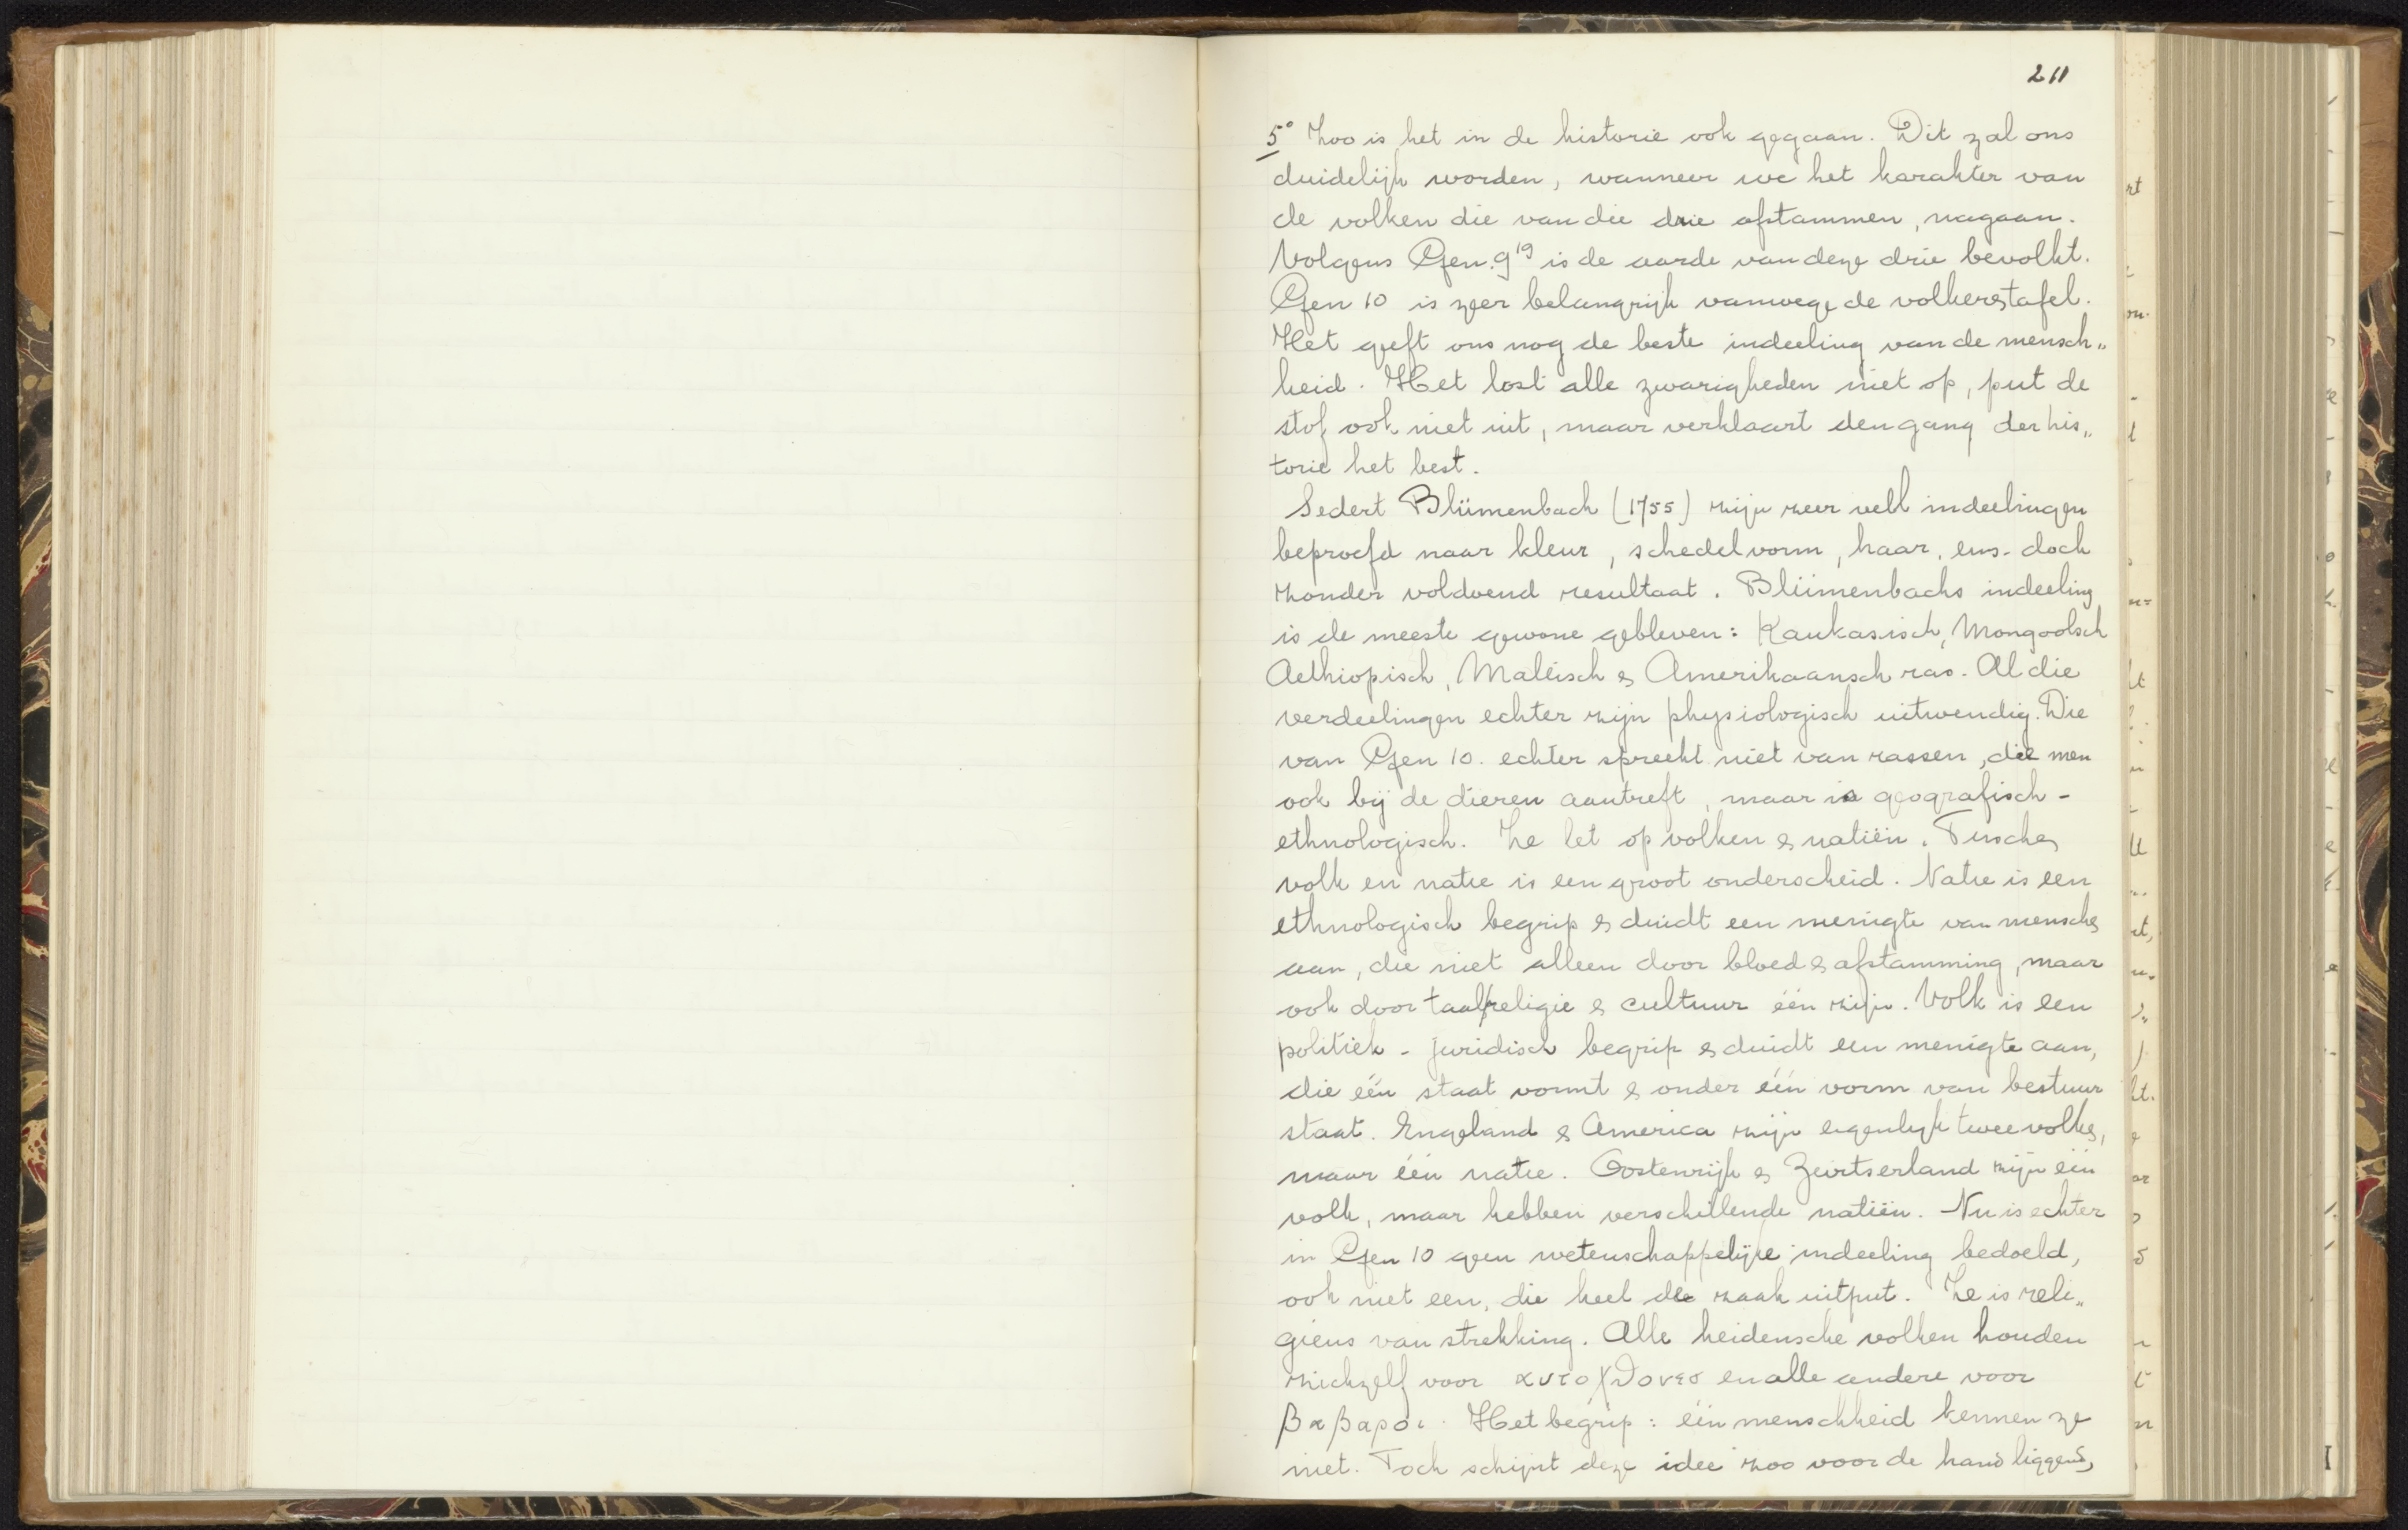 211
5° Zoo is het in de historie ook gegaan. Dit zal ons
duidelijk worden, wanneer we het karakter van
de volken die van die drie afstammen, nagaan.
Volgens Gen. 9¹⁹ is de aarde van deze drie bevolkt.
Gen 10 is zeer belangrijk vanwege de volkerstafel.
Het geeft ons nog de beste indeeling van de mensch„
heid. Het lost alle zwarigheden niet op, put de
stof ook niet uit, maar verklaart den gang der his„
torie het best.
Sedert Blümenbach (1755) zijn zeer veel indeelingen
beproefd naar kleur, schedelvorm, haar, enz. doch
zonder voldoend resultaat. Blümenbachs indeeling
is de meeste gewone gebleven: Kaukasisch, Mongoolsch
Aethiopisch, Maleisch & Amerikaansch ras. Al die
verdeelingen echter zijn physiologisch uitwendig. Die
van Gen 10. echter spreekt niet van rassen, die men
ook bij de dieren aantreft, maar is geografisch-
ethnologisch. Ze let op volken & natiën. Tusschen
volk en natie is een groot onderscheid. Natie is een
ethnologisch begrip & duidt een menigte van menschen
aan, die niet alleen door bloed & afstamming, maar
ook door taal, religie & cultuur één zijn. Volk is een
politiek-juridisch begrip & duidt een menigte aan,
die één staat vormt & onder één vorm van bestuur
staat. Engeland & America zijn eigenlijk twee volken,
maar één natie. Oostenrijk & Zwitserland zijn één
volk, maar hebben verschillende natiën. Nu is echter
in Gen 10 geen wetenschappelijke indeeling bedoeld,
ook niet een, die heel de zaak uitput. Ze is reli„
gieus van strekking. Alle heidensche volken houden
zichzelf voor αυτοχθονεσ en alle andere voor
βαβαροι. Het begrip: één menschheid kennen ze
niet. Toch schijnt deze idee zoo voor de hand liggend,